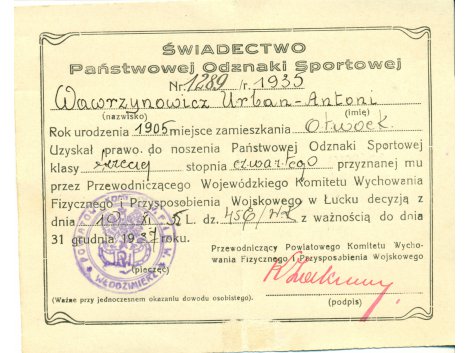 ŚWIADECTWO
Państwowej Odznaki Sportowej
Nr. 1289 /r. 1935
Wawrzynowicz Urban-Antoni
(nazwisko) (imię)
Rok urodzenia 1905 miejsce zamieszkania Otwock
Uzyskał prawo do noszenia Państwowej Odznaki Sportowej
klasy trzeciej stopnia czwartego przyznanej mu
przez Przewodniczącego Wojewódzkiego Komitetu Wychowania
Fizycznego i Przysposobienia Wojskowego w Łucku decyzją z
dnia 10 XI 35 L. dz. 456/ z ważnością do dnia
31 grudnia 1937 roku.
Przewodniczący Powiatowego Komitetu Wycho-
wania Fizycznego i Przysposobienia Wojskowego
(pieczęć)
(Ważne przy jednoczesnem okazaniu dowodu osobistego).
(podpis)
WŁODZIMIERZ